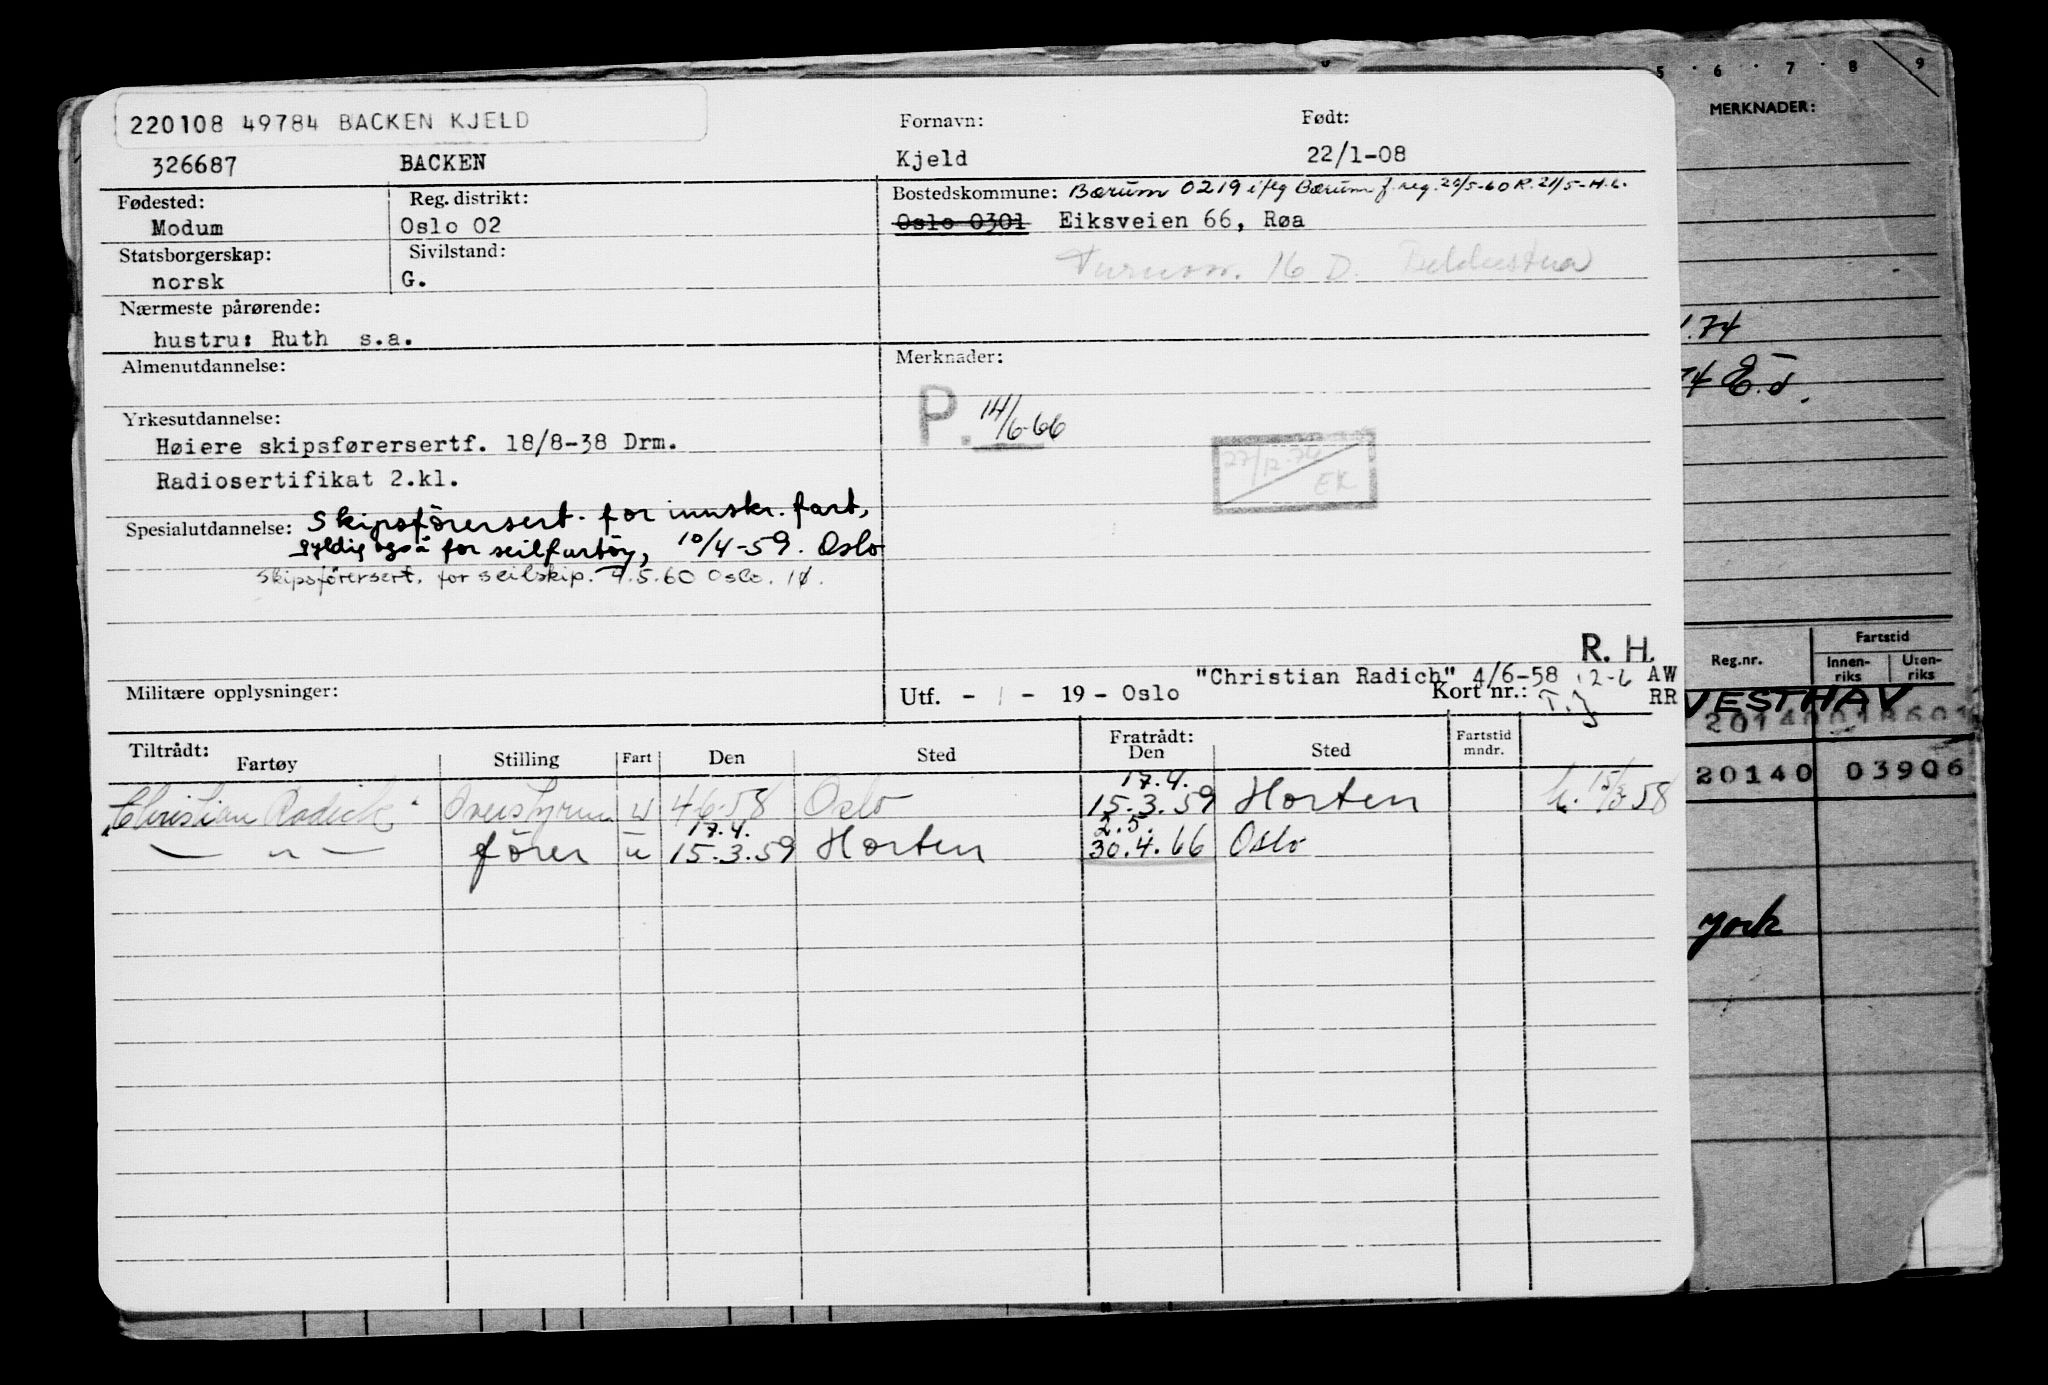 220108 49784 BACKEN KJELD
Fornavn:
Født:
326687 BACKEN Kjeld 22/1-08
Fødested:
Reg. distrikt:
Bostedskommune: Bærum 0219 i flg Bærum f.reg. 20/5-60 R. 21/5-H.L.
Modum Oslo 02 Oslo 0301 Eiksveien 66, Røa
Statsborgerskap:
Sivilstand:
16 D.
norsk G.
Nærmeste pårørende:
hustru: Ruth s.a.
Almenutdannelse:
Merknader:
P. 14/6-66
Yrkesutdannelse:
Høiere skipsførersertf. 18/8-38 Drm.
27/12-74 EK
Radiosertifikat 2.kl.
Spesialutdannelse: Skipsførersert. for innskr. fart,
gyldig også for seilfartøy, 10/4-59. Oslo
Skipsførersert. for seilskip. 4.5.60 Oslo.
R. H.
"Christian Radich" 4/6-58 12-6 AW
Militære opplysninger:
Utf. - 1 - 19 - Oslo Kort nr.: T.J RR
Tiltrådt:
Fratrådt:
Fartøy Stilling Fart Den Sted Den Sted Fartstid mndr.
17.4.
"Christian Radich" Overstyrm u 4-6-58 Oslo 15.3.59 Horten 15/3 58
17.4. 2.5.
— " — fører u 15.3.59 Horten 30.4.66 Oslo
5 6 7 8 9
MERKNADER:
.74
74 E.d.
Reg.nr.
Fartstid
Innen-riks
Uten-riks
VESTHAV
20140
20140 03906
York